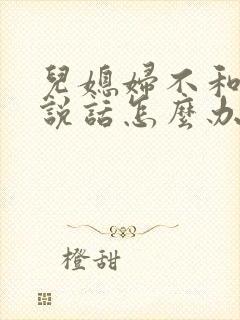 兒媳婦不和
說話怎麼办
橙甜